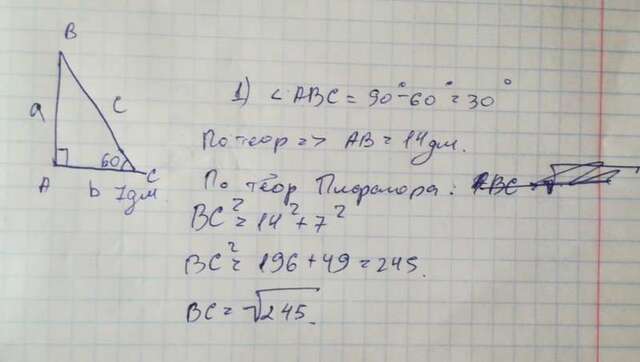 B
a
C
60°
A
b
7дм
C
1) ∠ABC = 90° - 60° = 30°
По теор => AB = 14 дм.
По теор Пифагора:
BC² = 14² + 7²
BC² = 196 + 49 = 245.
BC = √245.